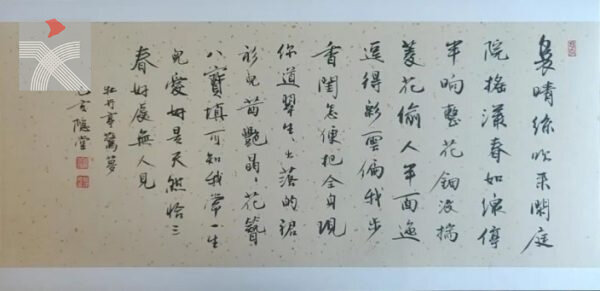 裊晴絲吹來閑庭
院搖漾春如線停
半晌整花鈿没揣
菱花偷人半面迤
逗得彩雲偏我步
香閨怎便把全身現
你道翠生々出落的裙
衫兒茜艷晶々花簪
八寶瑱可知我常一生
兒愛好是天然恰三
春好處無人見
牡丹亭驚夢
隱堂